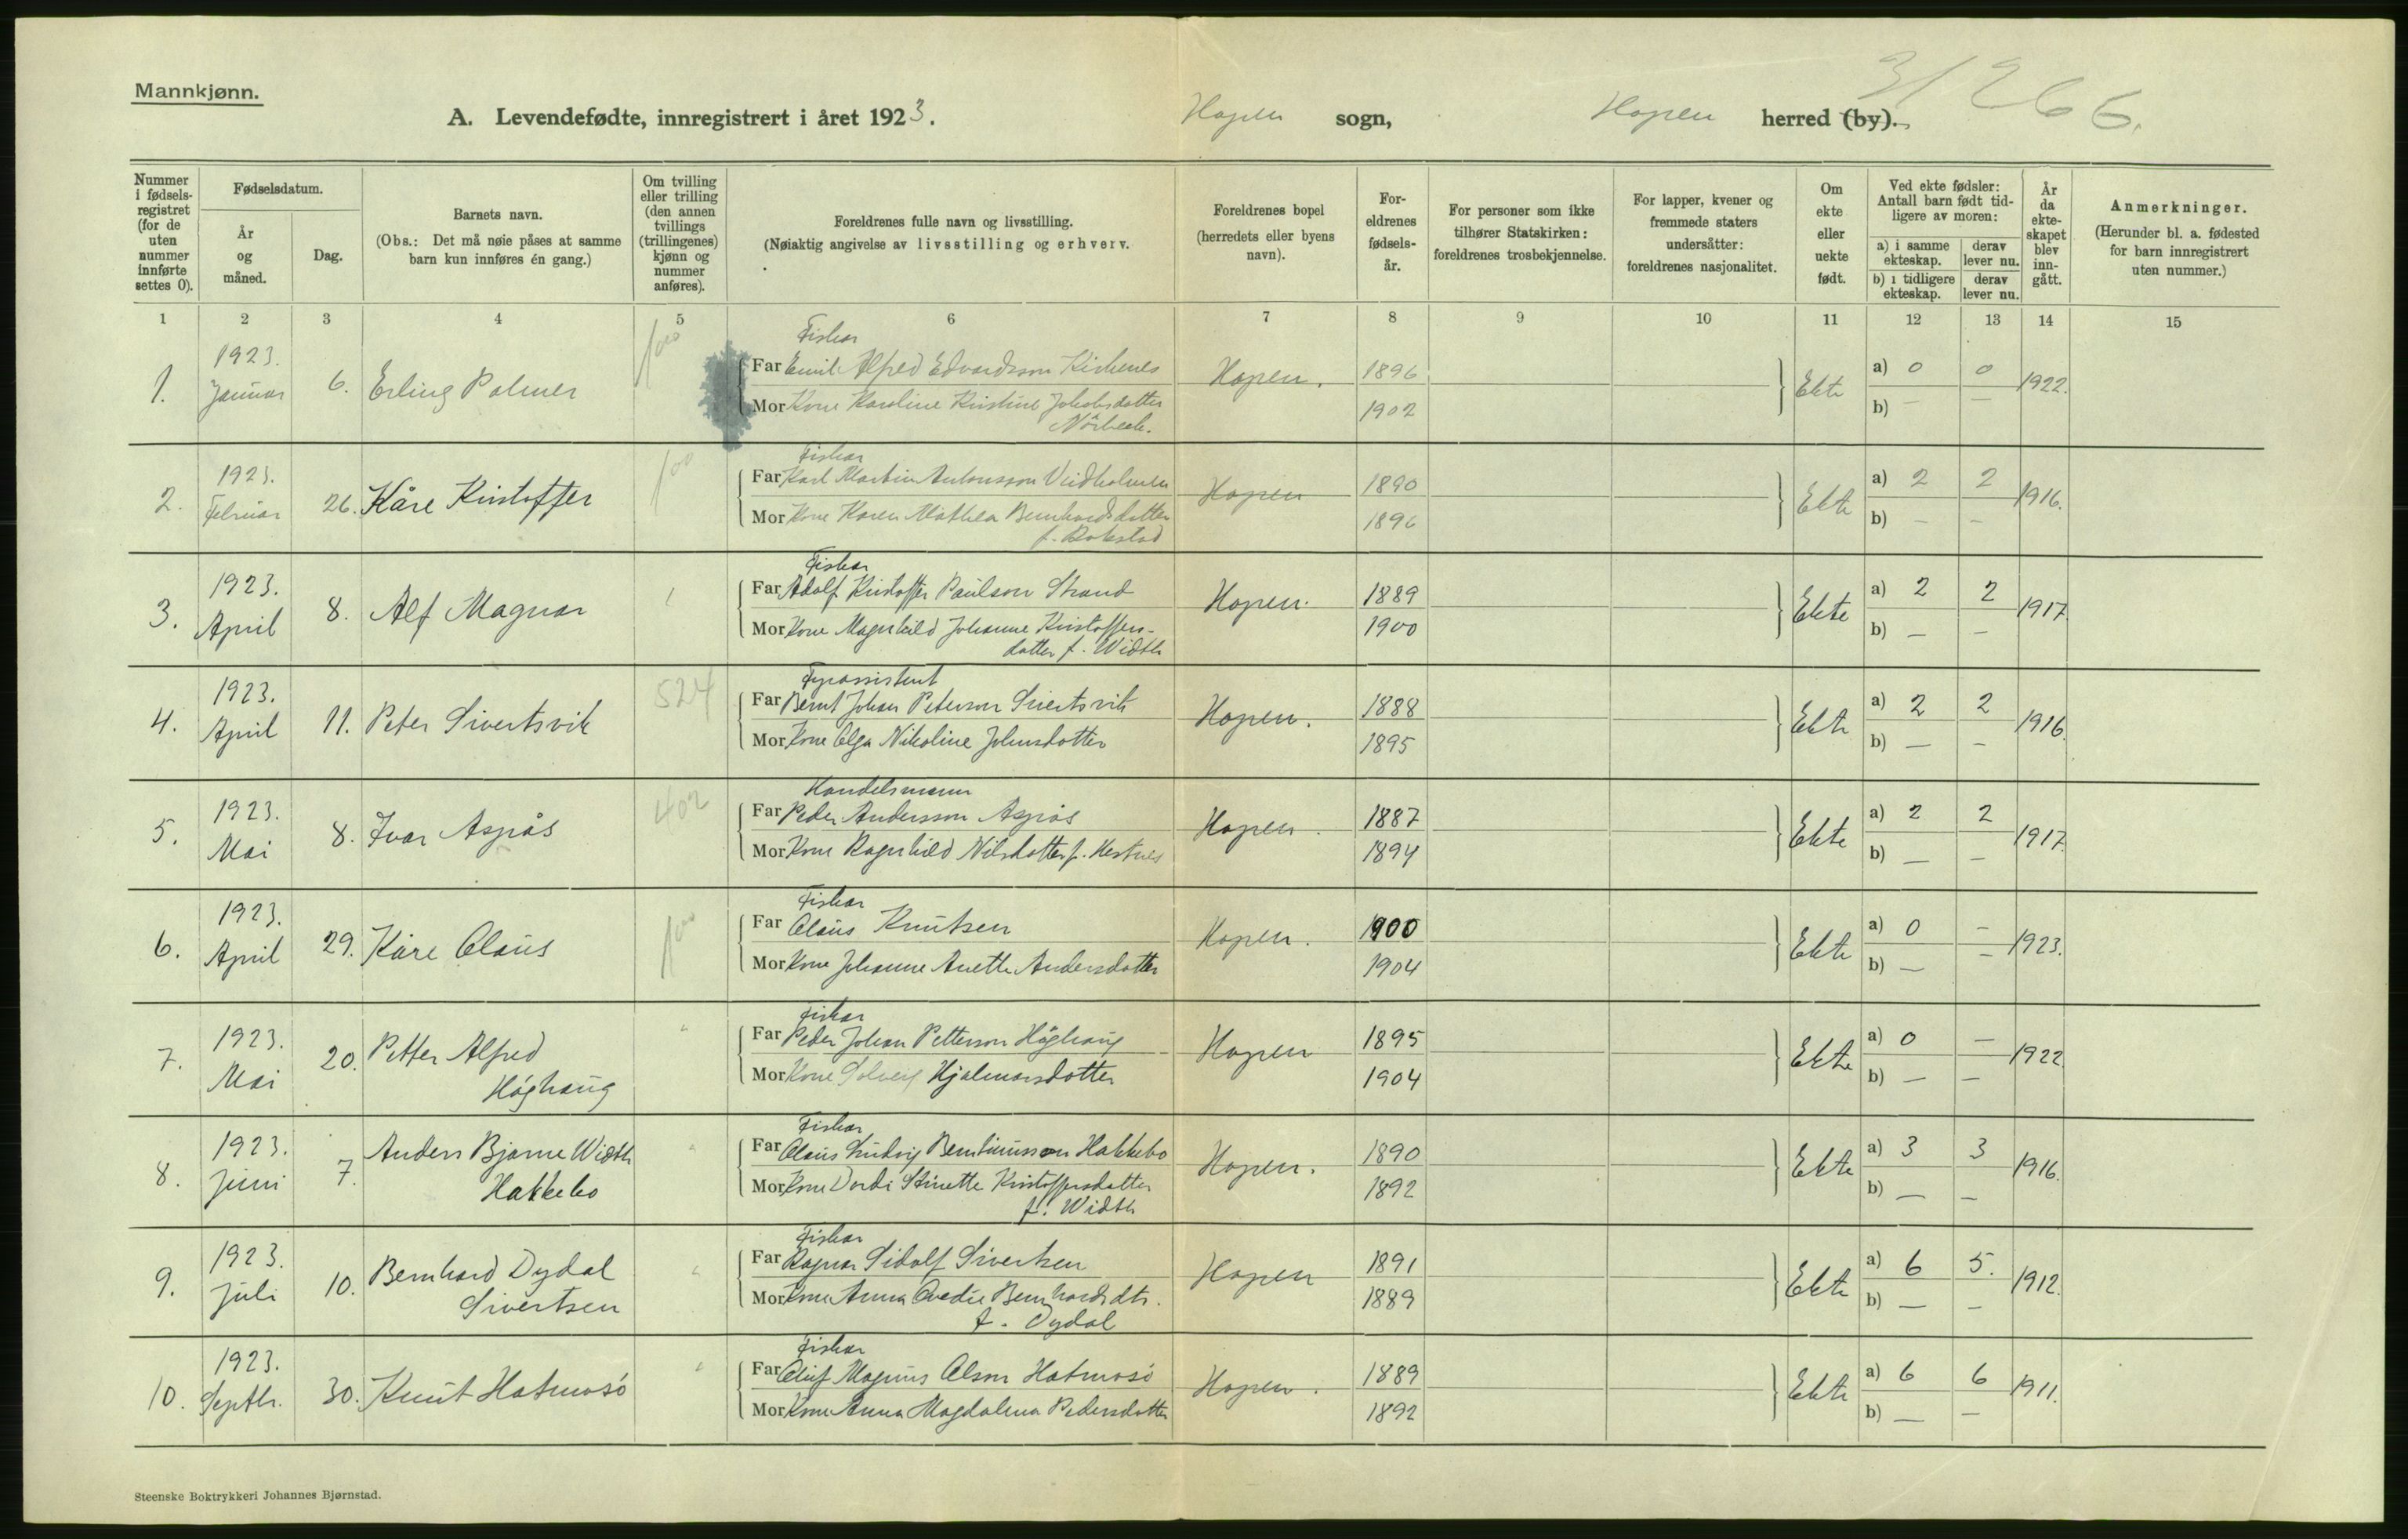 Mannkjønn.
3/266.
A. Levendefødte, innregistrert i året 1923. Hopen sogn, Hopen herred (by).
Nummer i fødselsregistret (for de uten nummer innførte settes 0).
Fødselsdatum.
År og måned.
Dag.
Barnets navn.
(Obs.: Det må nøie påses at samme barn kun innføres én gang.)
Om tvilling eller trilling (den annen tvillings (trillingenes) kjønn og nummer anføres).
Foreldrenes fulle navn og livsstilling.
(Nøiaktig angivelse av livsstilling og erhverv.
Foreldrenes bopel (herredets eller byens navn).
Foreldrenes fødselsår.
For personer som ikke tilhører Statskirken: foreldrenes trosbekjennelse.
For lapper, kvener og fremmede staters undersåtter: foreldrenes nasjonalitet.
Om ekte eller uekte født.
Ved ekte fødsler: Antall barn født tidligere av moren:
a) i samme ekteskap. derav lever nu.
b) i tidligere ekteskap. derav lever nu.
År da ekteskapet blev inngått.
Anmerkninger.
(Herunder bl. a. fødested for barn innregistrert uten nummer.)
1 2 3 4 5 6 7 8 9 10 11 12 13 14 15
Fisker
1. 1923. Januar 6. Erling Palmer 100 Far Emil Alfred Edvardsson Kirknes Hopen. 1896 Ekte a) 0 0 1922.
Mor Kone Karoline Kristine Jakobsdatter 1902 b) — —
Nörbech.
Fisker
2. 1923. Februar 26. Kåre Kristoffer 100 Far Karl Martin Antonsson Veidholmen Hopen 1890 Ekte a) 2 2 1916.
Mor Kone Karen Mathea Bernhardsdatter 1896 b) — —
f. Rokstad
Fisker
3. 1923. April 8. Alf Magnar Far Adolf Kristoffer Paulson Strand Hopen. 1889 Ekte a) 2 2 1917.
Mor Kone Magnhild Johanne Kristoffers- 1900 b) — —
datter f. Width
Fyrassistent
4. 1923. April 11. Peter Sivertsvik 524 Far Bernt Johan Peterson Sivertsvik Hopen. 1888 Ekte a) 2 2 1916.
Mor Kone Olga Nikoline Johnsdatter 1895 b) — —
Handelsmann
5. 1923. Mai 8. Ivar Aspås 402 Far Peder Andersson Aspås Hopen. 1887 Ekte a) 2 2 1917.
Mor Kone Ragnhild Nilsdatter f. Hestnes 1894 b) — —
Fisker
6. 1923. April 29. Kåre Olaus 100 Far Olaus Knutsen Hopen. 1900 Ekte a) 0 — 1923.
Mor Kone Johanne Anette Andersdatter 1904 b) — —
Fisker
7. 1923. Mai 20. Petter Alfred Höghaug " Far Peder Johan Petterson Höghaug Hopen 1895 Ekte a) 0 — 1922
Mor Kone Solveig Hjalmarsdatter 1904 b) — —
Fisker
8. 1923. Juni 7. Anders Bjarne Width Hakkebo " Far Olaus Ludvig Bentinusson Hakkebo Hopen. 1890 Ekte a) 3 3 1916.
Mor Kone Dordi Stinette Kristoffersdatter 1892 b) — —
f. Width
Fisker
9. 1923. Juli 10. Bernhard Dydal Sivertsen " Far Ragnar Sidolf Sivertsen Hopen 1891 Ekte a) 6 5. 1912.
Mor Kone Anna Ovedie Bernhardsdtr. 1889 b) — —
f. Dydal
Fisker
10. 1923. Septbr. 30. Knut Hatmosö " Far Oluf Magnus Olson Hatmosö Hopen. 1889 Ekte a) 6 6 1911.
Mor Kone Anna Magdalena Pedersdatter 1892 b) — —
Steenske Boktrykkeri Johannes Bjørnstad.